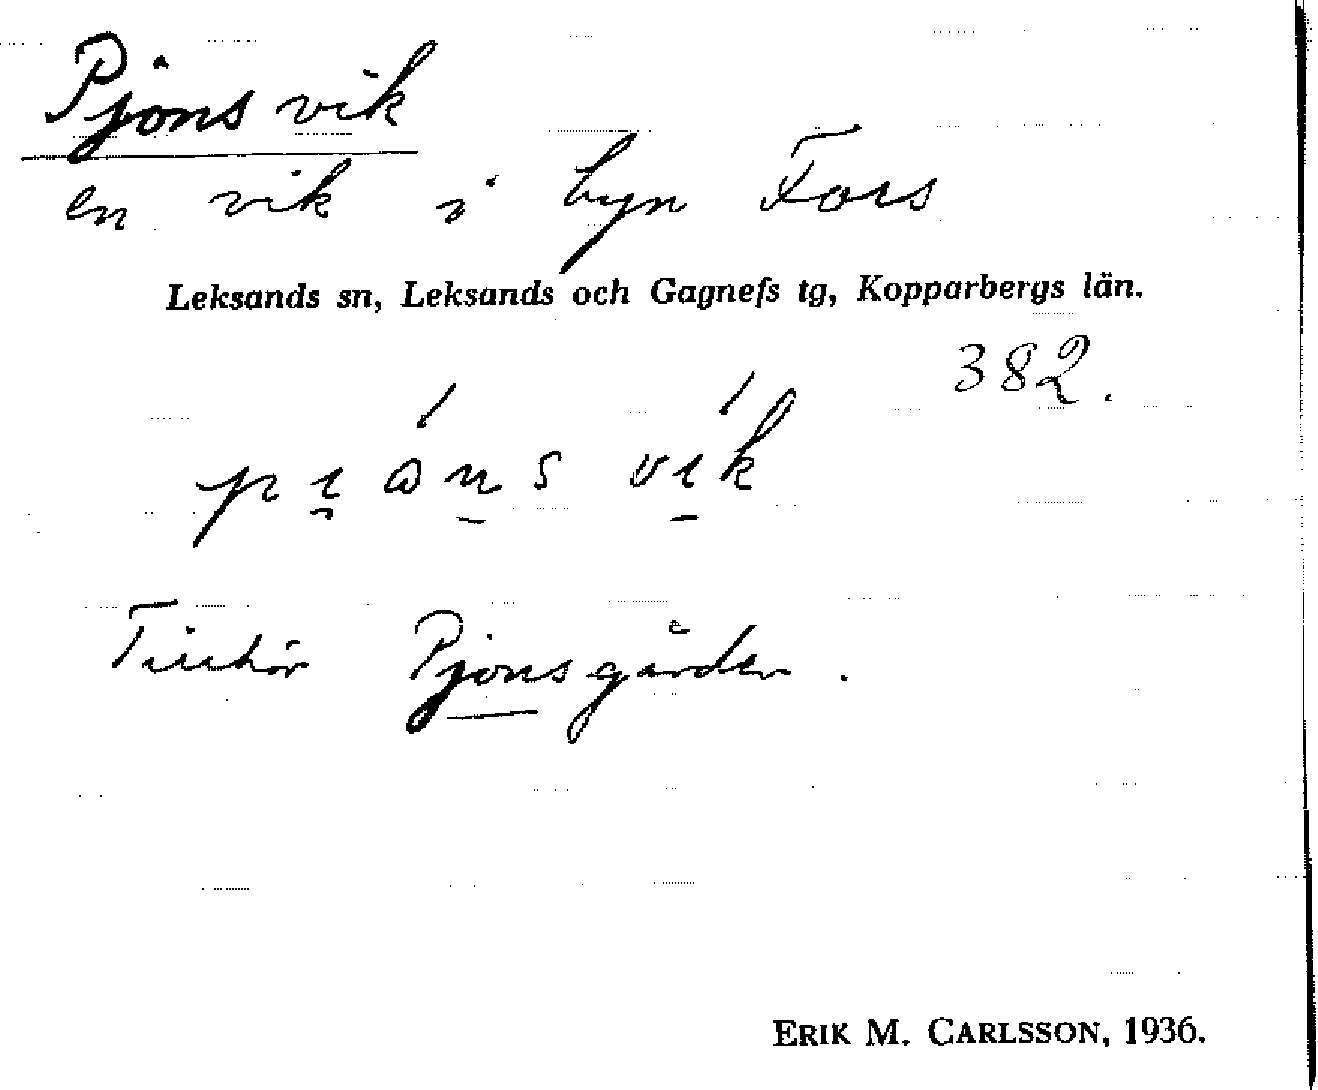 Pjons vik
en vik i byn Fors
Leksands sn, Leksands och Gagnefs tg, Kopparbergs län.
382.
Tillhör Pjonsgården.
ERIK M. CARLSSON, 1936.